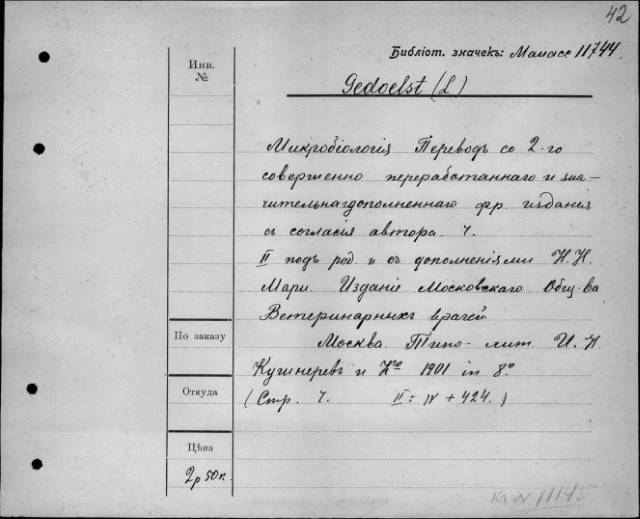 42
Библіот. значекъ: Манасс 11744.
Инв.
№
Gedoelst (L)
Микробіологія Переводъ со 2-го
совершенно переработаннаго и зна-
чительнагдополненнаго фр. изданія
съ согласія автора ч.
II подъ ред. и съ дополненіями Н. Н.
Мари. Изданіе Московскаго Общ-ва
Ветеринарныхъ врачей
По заказу
Москва. Типо-лит И. Н.
Кушнеревъ и Ко 1901 in 8º
Откуда
(Стр. ч. II: IV + 424.)
Цѣна
2р 50к.
Кл N 11145